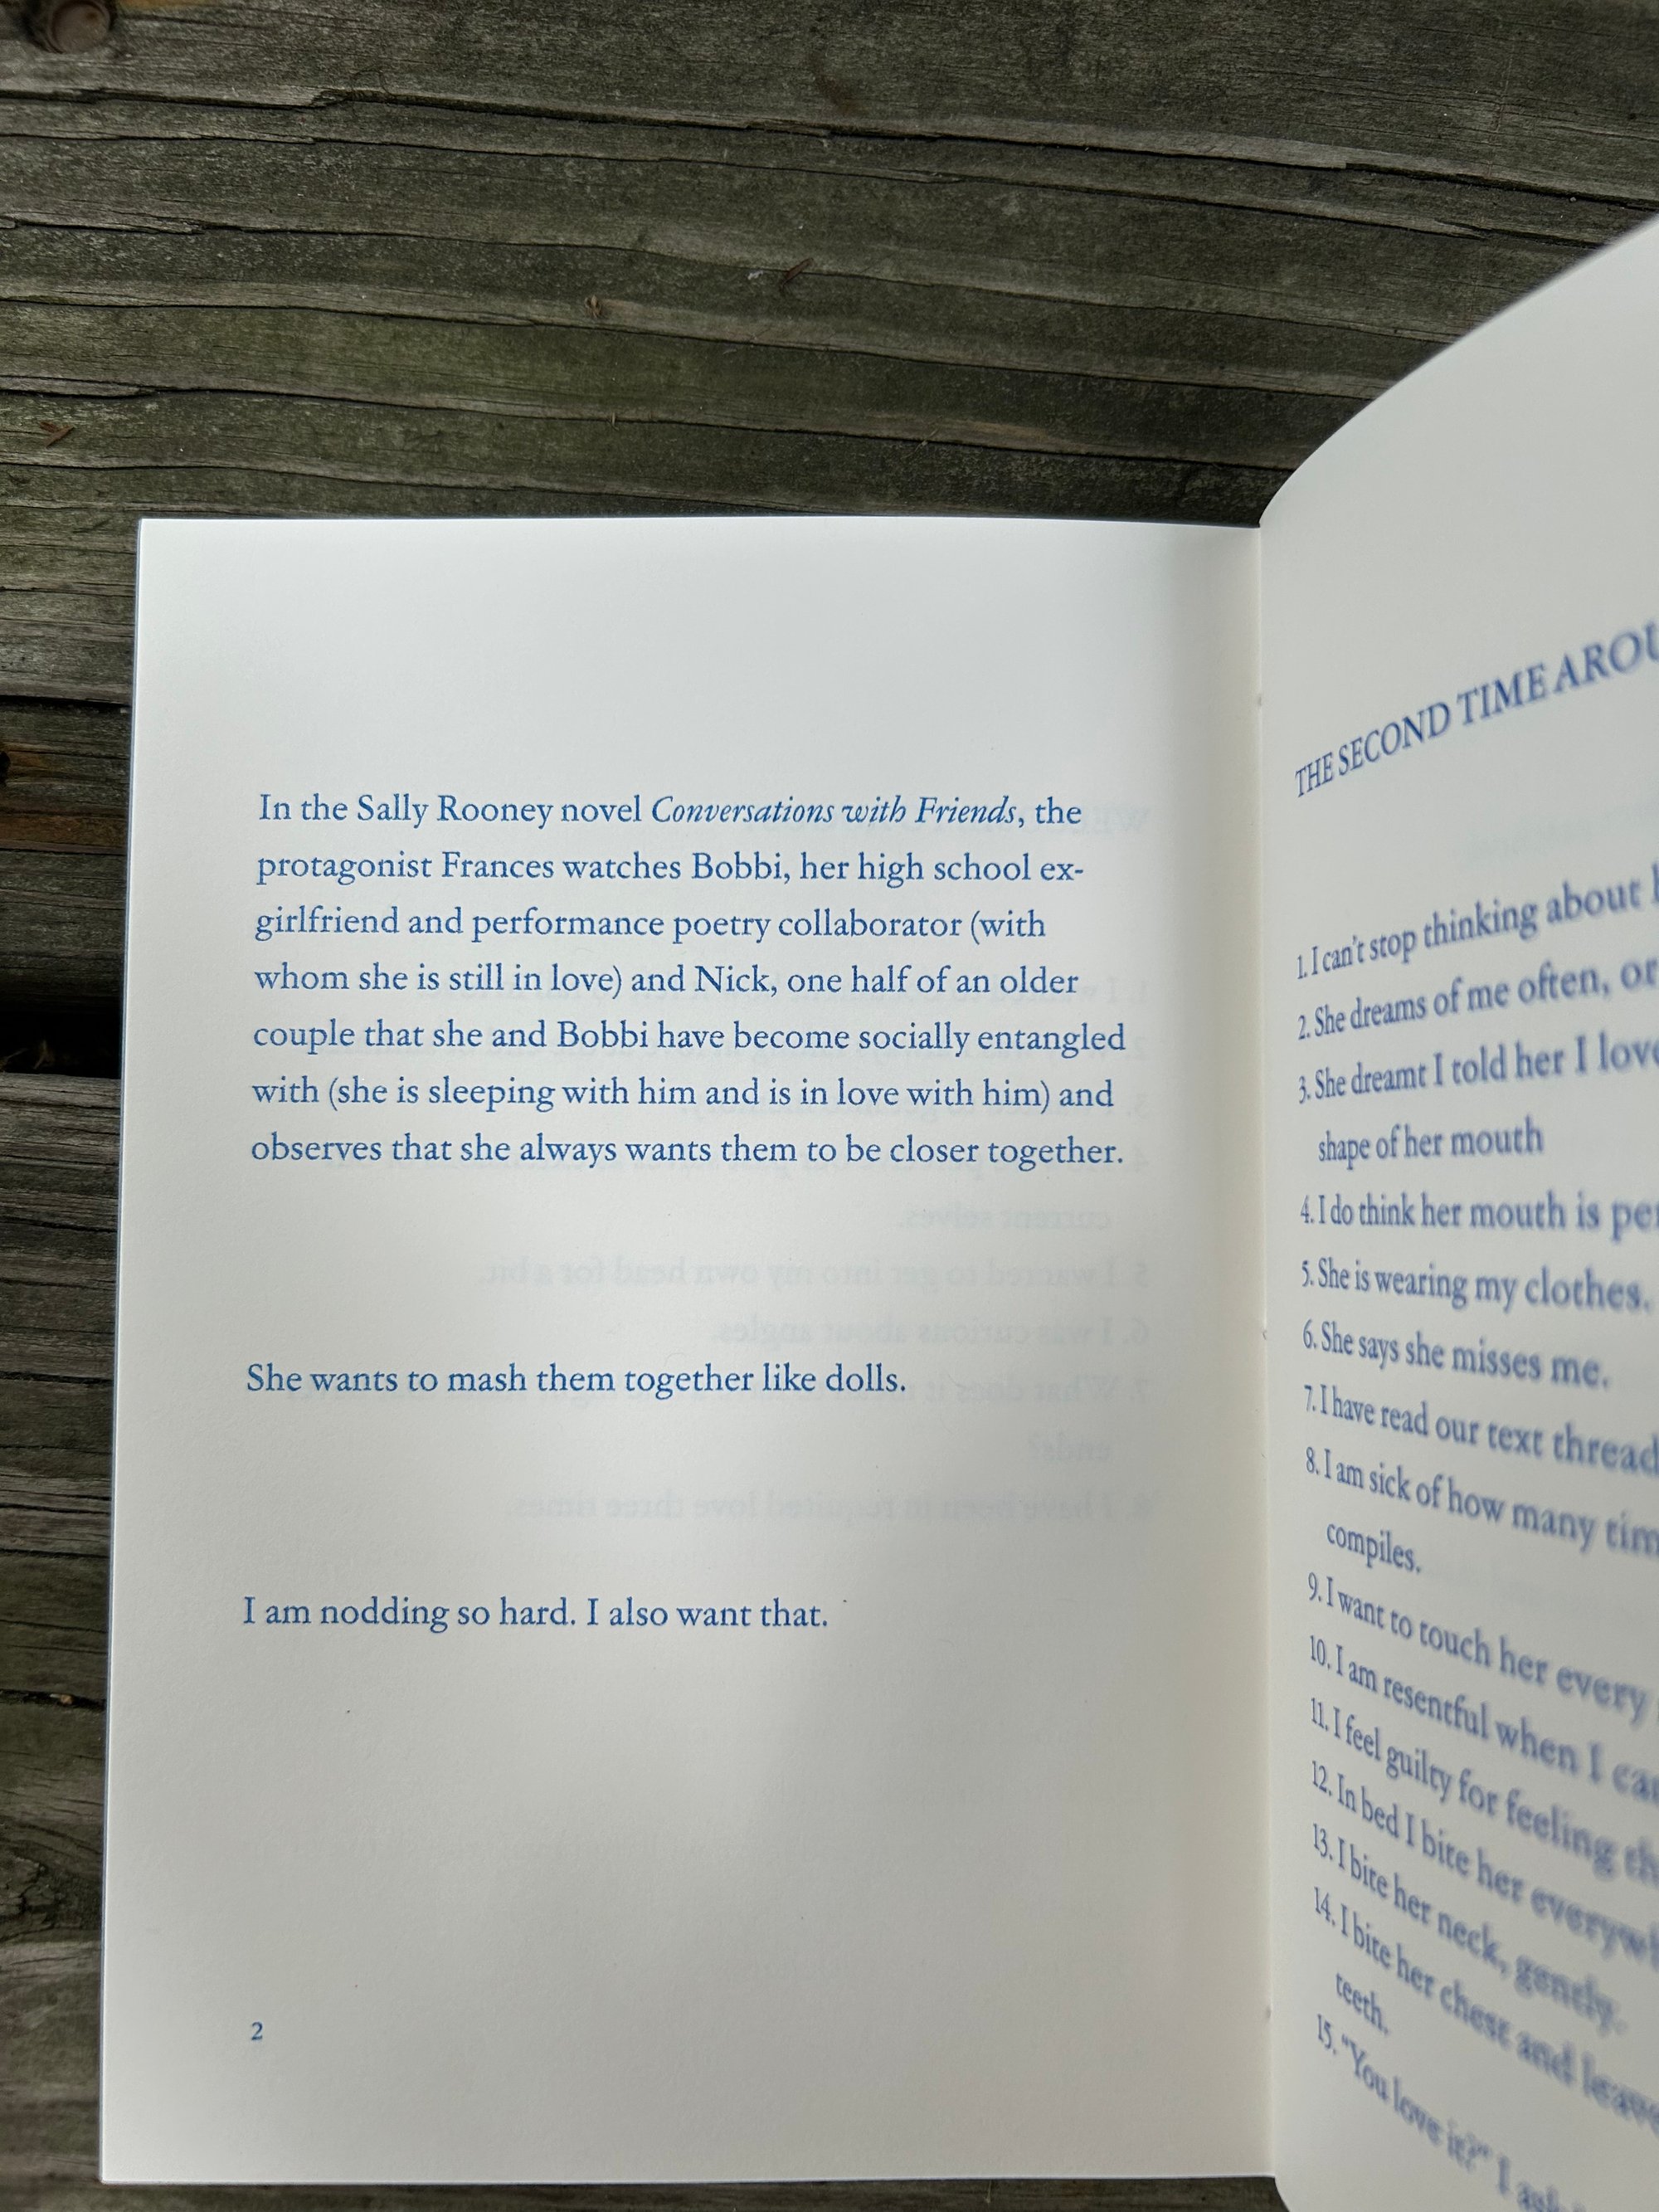 In the Sally Rooney novel Conversations with Friends, the
protagonist Frances watches Bobbi, her high school ex-
girlfriend and performance poetry collaborator (with
whom she is still in love) and Nick, one half of an older
couple that she and Bobbi have become socially entangled
with (she is sleeping with him and is in love with him) and
observes that she always wants them to be closer together.
She wants to mash them together like dolls.
I am nodding so hard. I also want that.
2
THE SECOND TIME
1. I can't stop thinking about
2. She dreams of me often, or
3. She dreamt I told her I
shape of her mouth
4. I do think her mouth is
5. She is wearing my clothes.
6. She says she misses me.
7. I have read our text thread
8. I am sick of how many
compiles.
9. I want to touch her every
10. I am resentful when I
11. I feel guilty for feeling
12. In bed I bite her
13. I bite her neck, gently.
14. I bite her chest and
teeth.
15. "You love it?" I